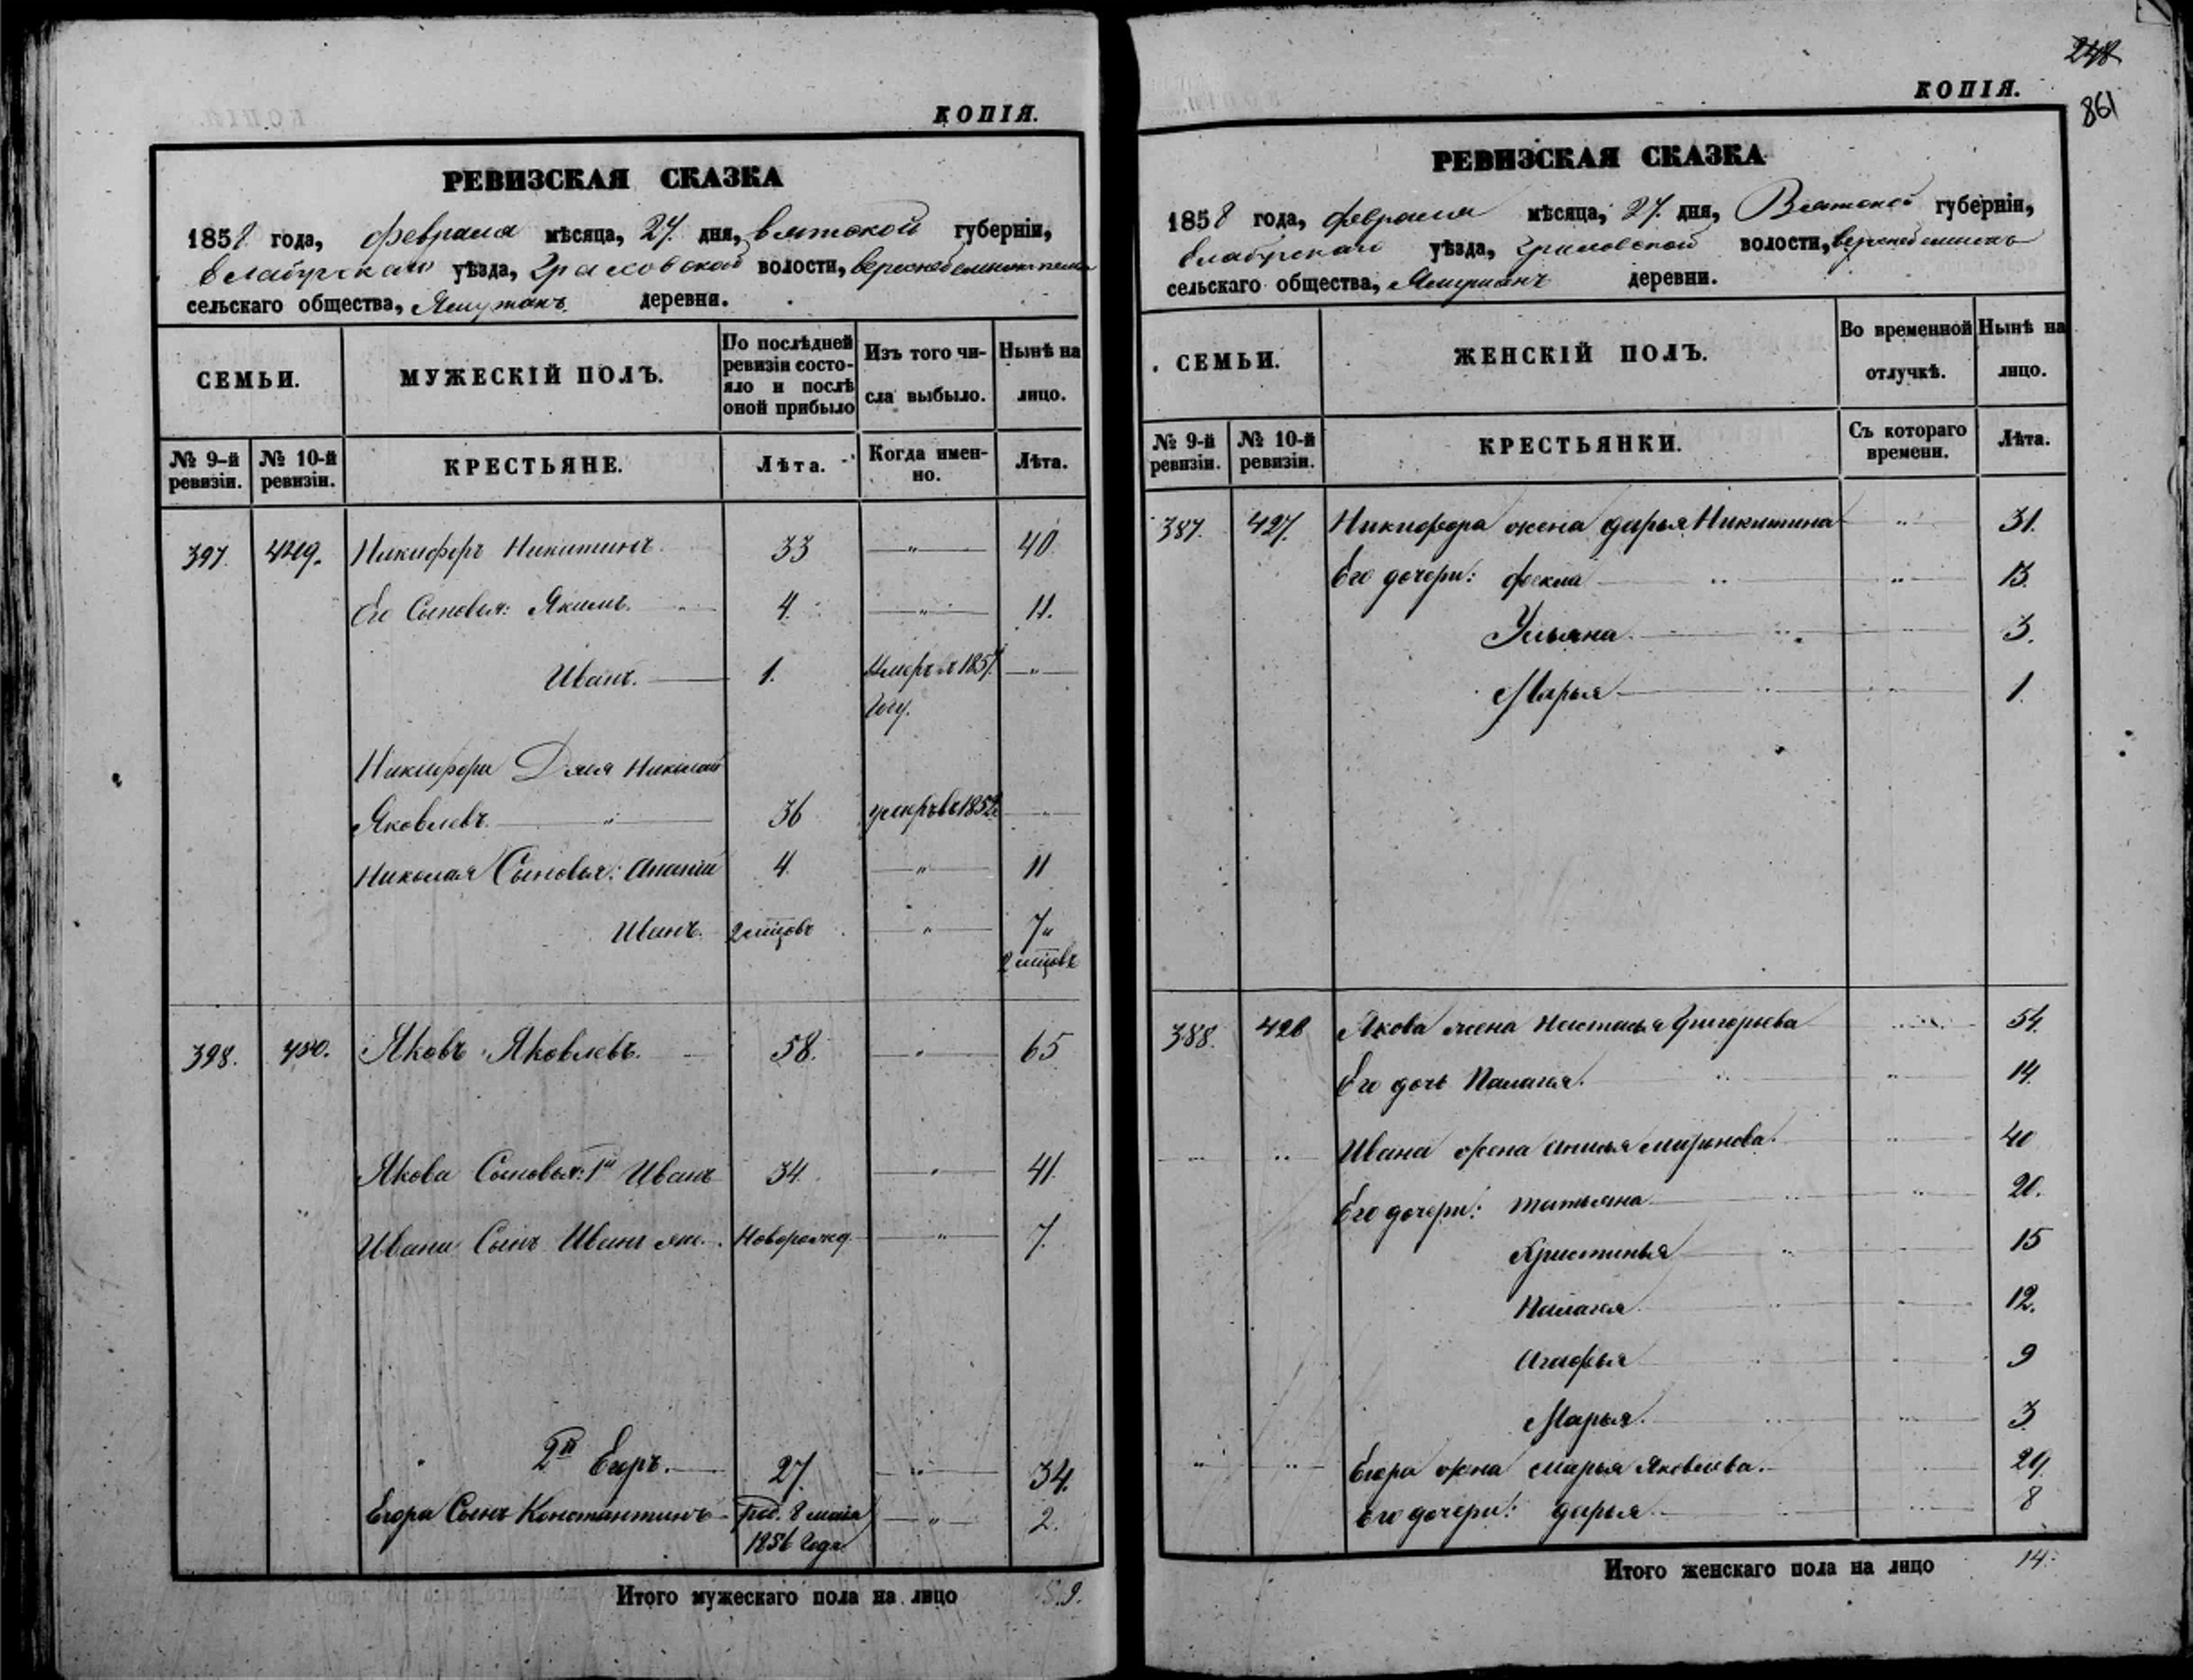 КОПІЯ.
РЕВИЗСКАЯ СКАЗКА
1858 года, февраля мѣсяца, 27. дня, Вятской губерніи,
Елабугскаго уѣзда, волости,
сельскаго общества, деревни.
СЕМЬИ.
МУЖЕСКІЙ ПОЛЪ.
По послѣдней ревизіи состояло и послѣ оной прибыло
Изъ того числа выбыло.
Нынѣ на лицо.
№ 9-й ревизіи.
№ 10-й ревизіи.
КРЕСТЬЯНЕ.
Лѣта.
Когда именно.
Лѣта.
397. Никифоръ Никитинъ. 33 — " — 40
Его Сыновья: Якимъ. 4. — " — 11.
Иванъ. 1. Умеръ въ 1857 — " —
году.
Никифора Дядя Николай
Яковлевъ. " 36 умеръ въ
Николая Сыновья: Ананiй 4. — " — 11
Иванъ. 2 мцовъ — " — 7 "
2 мцовъ
398. Яковъ Яковлевъ. 58. — " — 65
Якова Сыновья: 1й Иванъ 34. — " — 41.
Ивана Сынъ Иванъ Новорожд. — " — 7.
2й Егоръ. 27. — " — 34.
Егора Сынъ Константинъ Род. 8 маiя — " — 2.
1856 года
Итого мужескаго пола на лицо 9.
248
861
КОПІЯ.
РЕВИЗСКАЯ СКАЗКА
1858 года, февраля мѣсяца, 27. дня, Вятской губерніи,
Елабугскаго уѣзда, волости,
сельскаго общества, деревни.
СЕМЬИ.
ЖЕНСКІЙ ПОЛЪ.
Во временной отлучкѣ.
Нынѣ на лицо.
№ 9-й ревизіи.
№ 10-й ревизіи.
КРЕСТЬЯНКИ.
Съ котораго времени.
Лѣта.
387. 427. Никифора жена дарья Никитина " 31.
Его дочери: фекла " 13.
Ульяна. 3.
Марья 1.
388. 428 Якова жена Настасья Григорьева 54.
Его дочь Палагея. " 14.
Ивана жена 40
Его дочери: татьяна 20.
Христинья 15
Палагея 12.
Агафья 9
Марья. 3
Егора жена марья Яковлева. 29.
Его дочери: дарья 8
Итого женскаго пола на лицо 14.